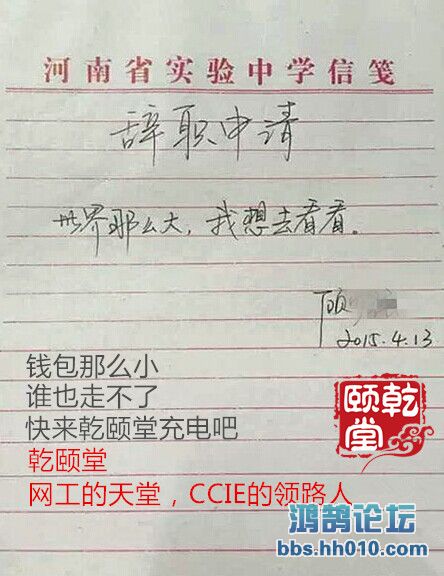 河南省实验中学信笺
辞职申请
世界那么大，我想去看看。
顾
2015.4.13
钱包那么小
谁也走不了
快来乾颐堂充电吧
乾颐堂
网工的天堂，CCIE的领路人
乾颐堂
鸿鹄论坛
bbs.hh010.com